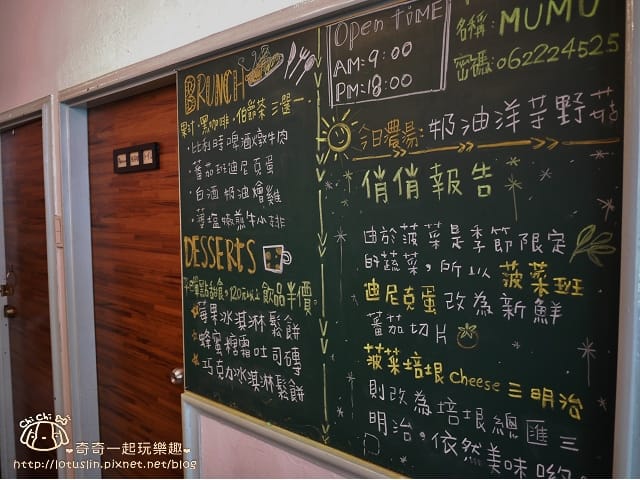 BRUNCH
果汁.黑咖啡.伯爵茶 三選一
・比利時啤酒燉牛肉
・蕃茄班迪尼克蛋
・白酒奶油燴雞
・薄塩嫩煎牛小排
DESSERTS
平日單點甜食,120元以上 飲品半價。
莓果冰淇淋鬆餅
蜂蜜糖霜吐司磚
巧克力冰淇淋鬆餅
Open TIME
AM:9:00
PM:18:00
名稱:MUMU
密碼:062224525
今日濃湯:奶油洋芋野菇
俏俏報告
由於菠菜是季節限定
的蔬菜,所以菠菜班
迪尼克蛋改為新鮮
蕃茄切片
菠菜培根cheese三明治
則改為培根總匯三
明治,依然美味喲
Chi Chi Go
奇奇一起玩樂趣
http://lotuslin.pixnet.net/blog